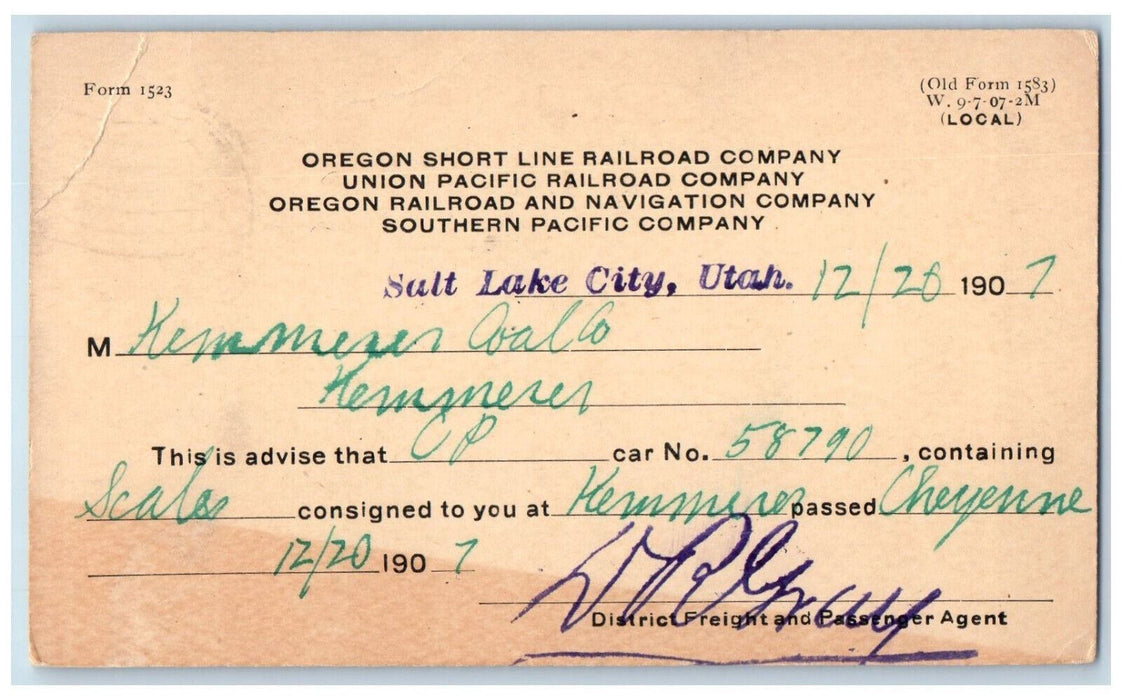 Form 1523
(Old Form 1583)
W. 9-7-07-2M
(LOCAL)
OREGON SHORT LINE RAILROAD COMPANY
UNION PACIFIC RAILROAD COMPANY
OREGON RAILROAD AND NAVIGATION COMPANY
SOUTHERN PACIFIC COMPANY
Salt Lake City, Utah. 12/20 1907
M Kemmerer Coal Co
Kemmerer
This is advise that CP car No. 58790, containing
Scales consigned to you at Kemmerer passed Cheyenne
12/20 1907
D R Gray
District Freight and Passenger Agent